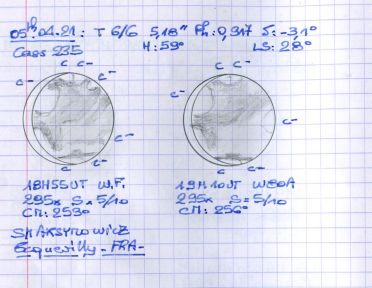 05 04.21 : T 6/6 5,18" Ph: 0,917 δ: -3,1°
Cass 235 H: 59° LS: 28°
C C- C C-
C- C-
C- C-
C C- C- C-
18H55UT W.F. 19H10UT W80A
295x S=5/10 295x S=5/10
CM: 253° CM: 256°
SMAKSYMOWICZ
Ecquevilly - FRA -